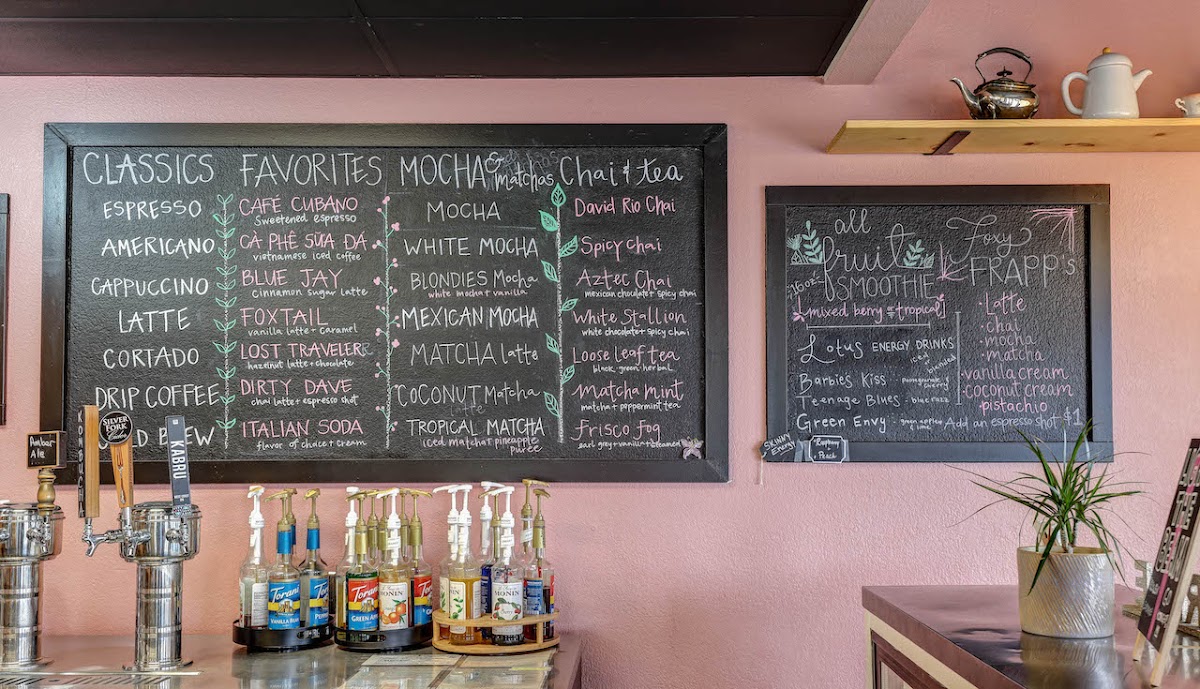 CLASSICS
ESPRESSO
AMERICANO
CAPPUCCINO
LATTE
CORTADO
DRIP COFFEE
BREW
FAVORITES
CAFÉ CUBANO
Sweetened espresso
CÀ PHÊ SỮA DÁ
vietnamese iced coffee
BLUE JAY
cinnamon sugar latte
FOXTAIL
vanilla latte + caramel
LOST TRAVELER
hazelnut latte + chocolate
DIRTY DAVE
chai latte + espresso shot
ITALIAN SODA
flavor of choice + cream
MOCHAS &
matchas
MOCHA
WHITE MOCHA
BLONDIES Mocha
white mocha + vanilla
MEXICAN MOCHA
MATCHA latte
COCONUT Matcha
Latte
TROPICAL MATCHA
iced matcha + pineapple
purée
Chai & tea
David Rio Chai
Spicy chai
Aztec Chai
mexican chocolate + spicy chai
White Stallion
white chocolate + spicy chai
Loose leaf tea
black, green, herbal
Matcha mint
matcha + peppermint tea
Frisco fog
earl grey + vanilla + steamed
all
fruit
SMOOTHIE
16oz
mixed berry or tropical
Lotus ENERGY DRINKS
iced
blended
Barbies Kiss - Pomegranate
+ cherry
Teenage Blues - blue razz
Green Envy - green apple
+ lime
SKINNY
ENERGY
Raspberry
+ Peach
Foxy
FRAPP'S
Latte
· chai
· mocha
· matcha
· vanilla cream
· coconut cream
pistachio
Add an espresso shot $1
Amber
Ale
KOMBUCHA
SILVER
FORK
KABRU
Torani
VANILLA
Torani
Torani
GREEN
MONIN
Torani
MONIN
MONIN